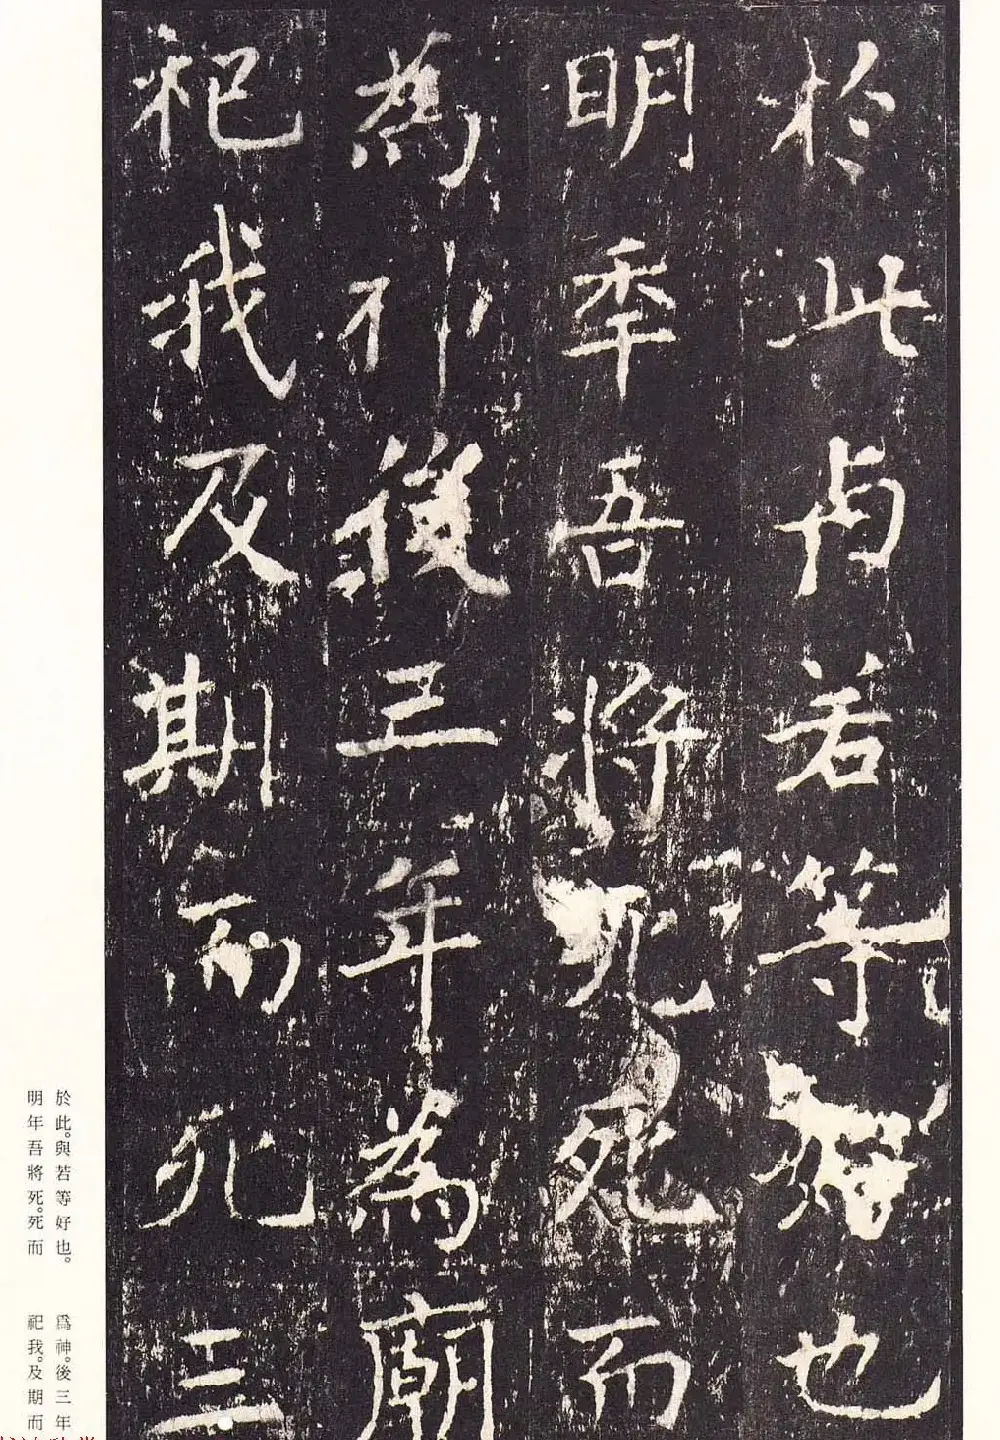 於此与若等好也
明年吾將死死而
為神後三年為廟
祀我及期而死三
於此。與若等好也。
明年吾將死。死而
爲神。後三年
祀我。及期而